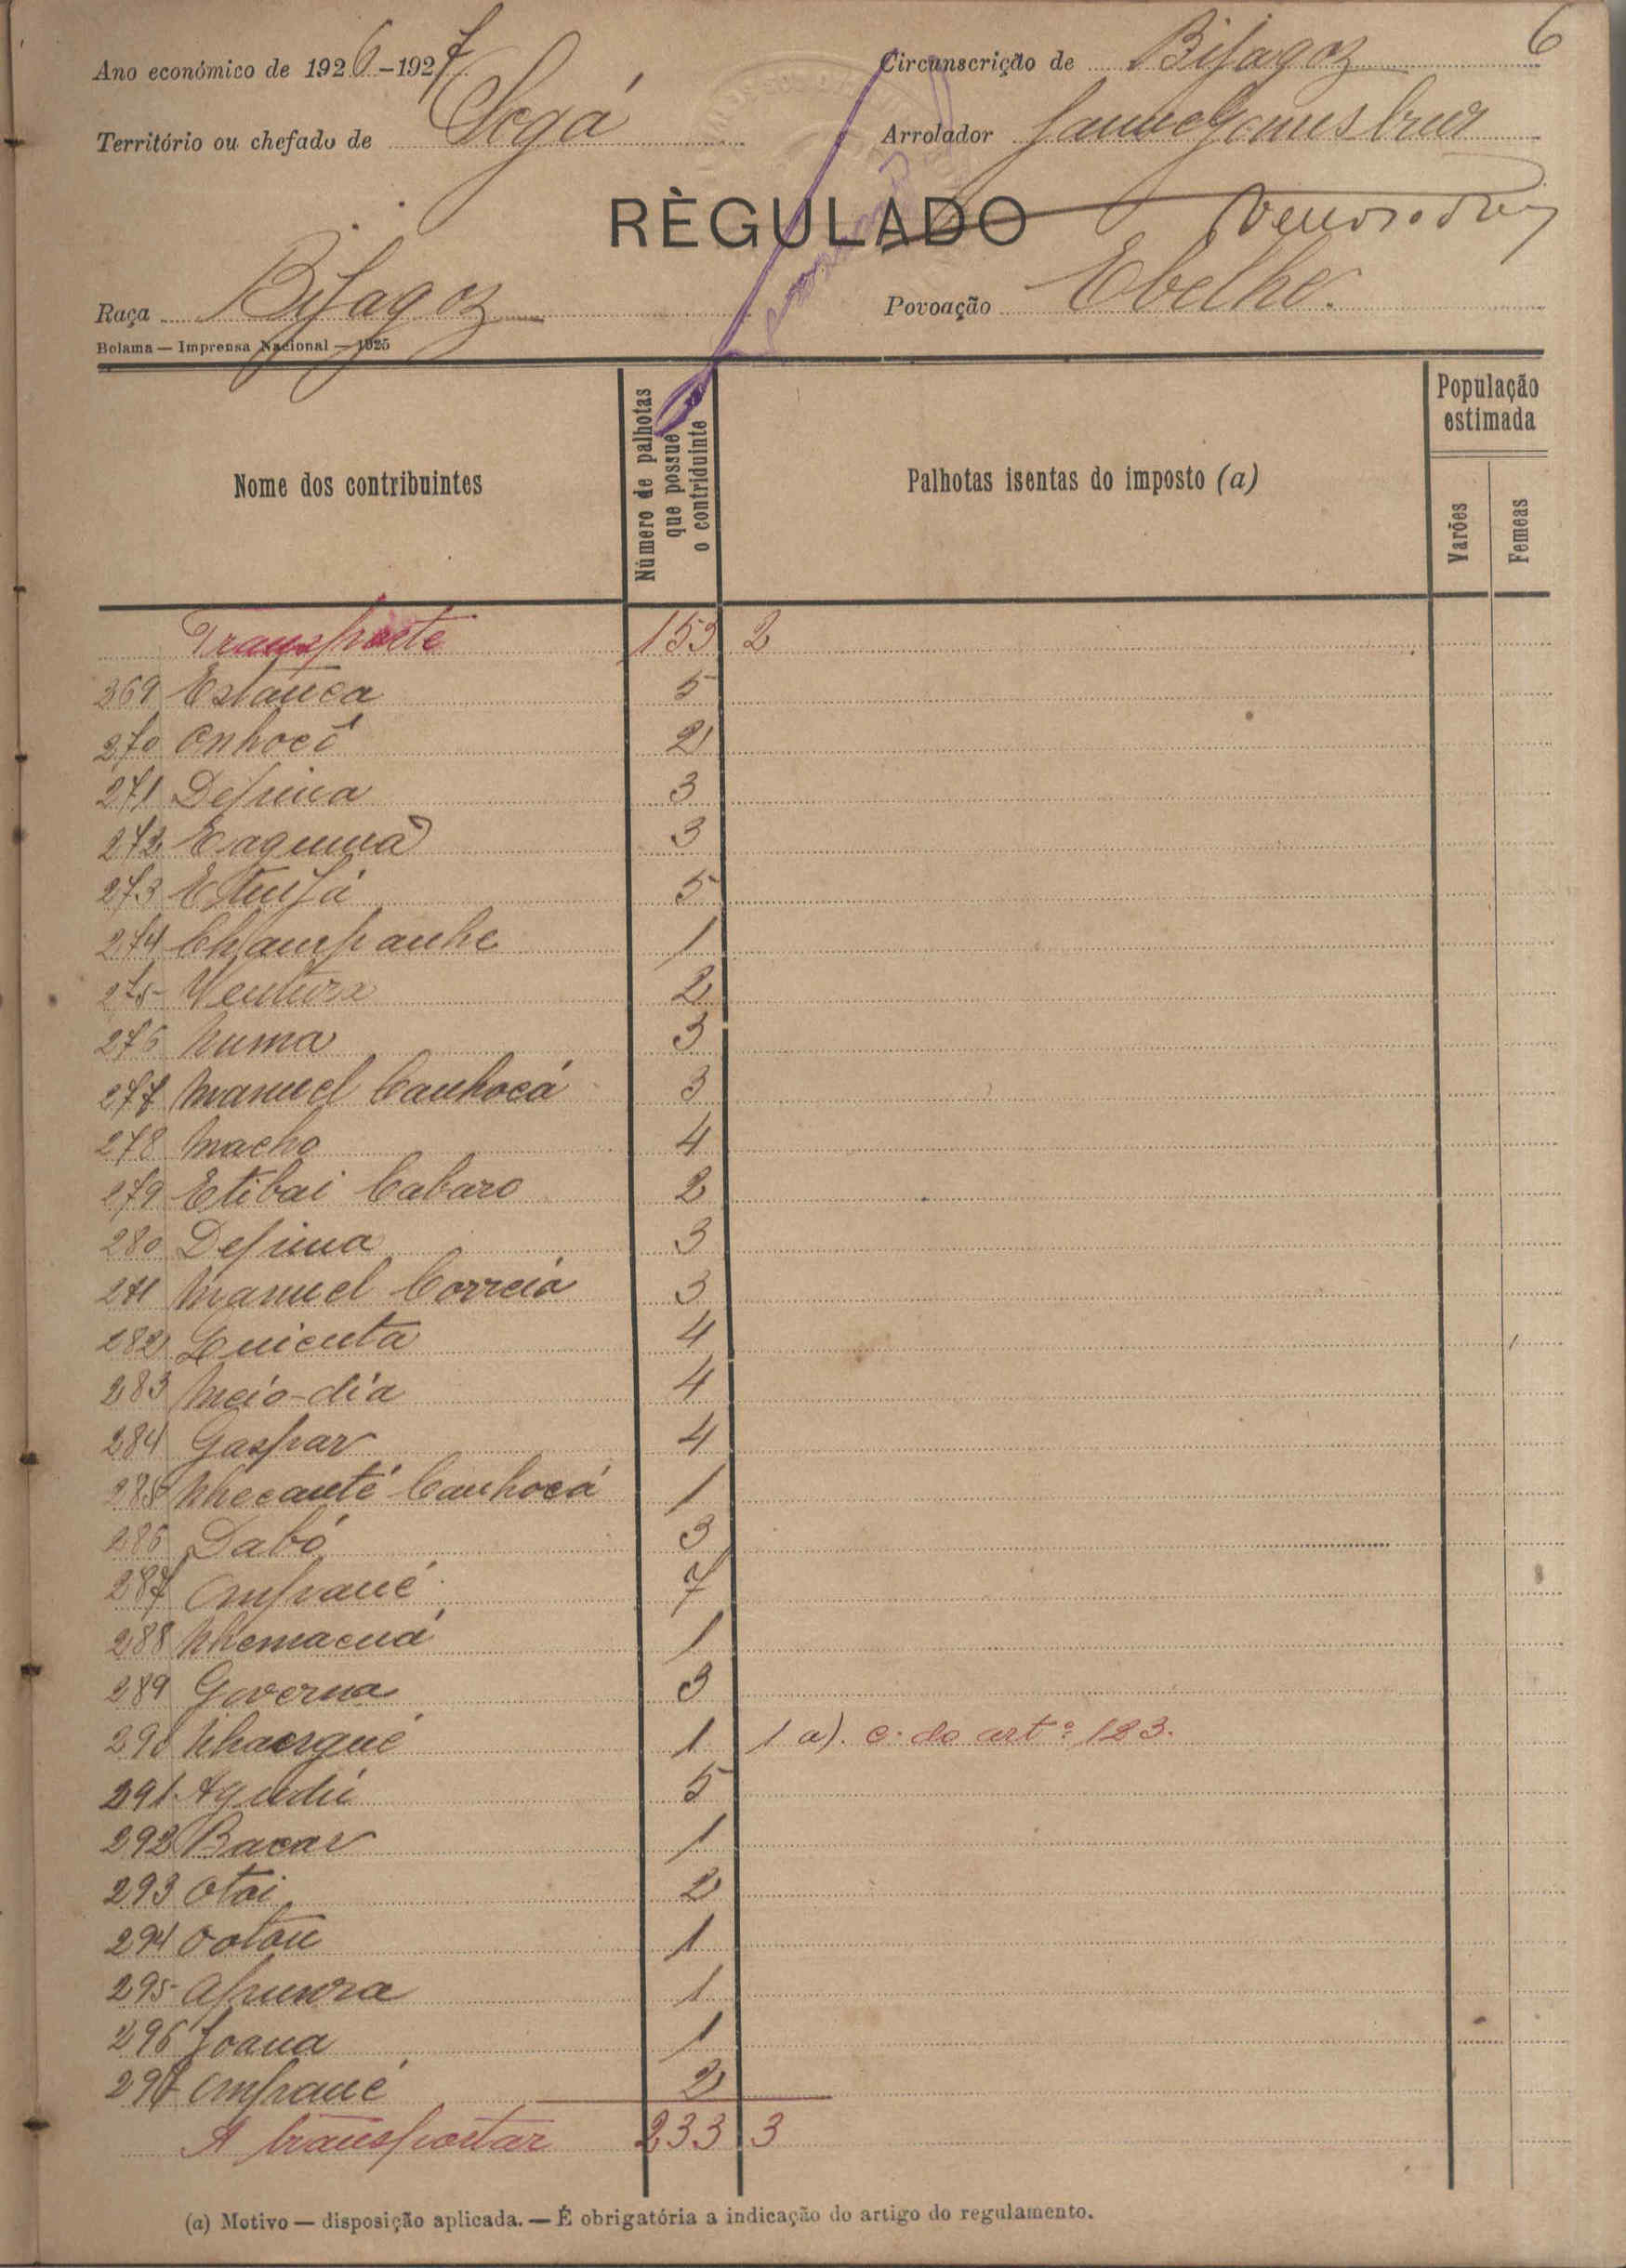 6
Ano económico de 1926-1927
Circunscrição de Bijagoz
Território ou chefado de Sogá
Arrolador
RÈGULADO
Raça Bijagoz
Povoação Ebelhe.
Bolama — Imprensa Nacional — 1925
Nome dos contribuintes
Número de palhotas que possue o contriduinte
Palhotas isentas do imposto (a)
População estimada
Varões
Femeas
Transporte 153 2
369 Estanca 5
270 Onhocê 2
271 Defuna 3
272 3
273 5
274 Champanhe 1
275 Ventura 2
276 Numa 3
277 Manuel Canhocá 3
278 Macho 4
279 Etibai Cabaro 2
280 Defuna 3
271 Manuel Correia 3
282 4
283 Meio-dia 4
284 Gaspar 4
285 Nhecanté Canhocá 1
286 Dabó 3
287 Ompané 7
288 Nhemacuá 1
289 Governa 3
290 1 1 a). c. do artº 123.
291 5
292 Bacar 1
293 Otai 2
294 Ootou 1
295 1
296 Joana 1
297 Ompané 2
A transportar 233 3
(a) Motivo — disposição aplicada. — É obrigatória a indicação do artigo do regulamento.